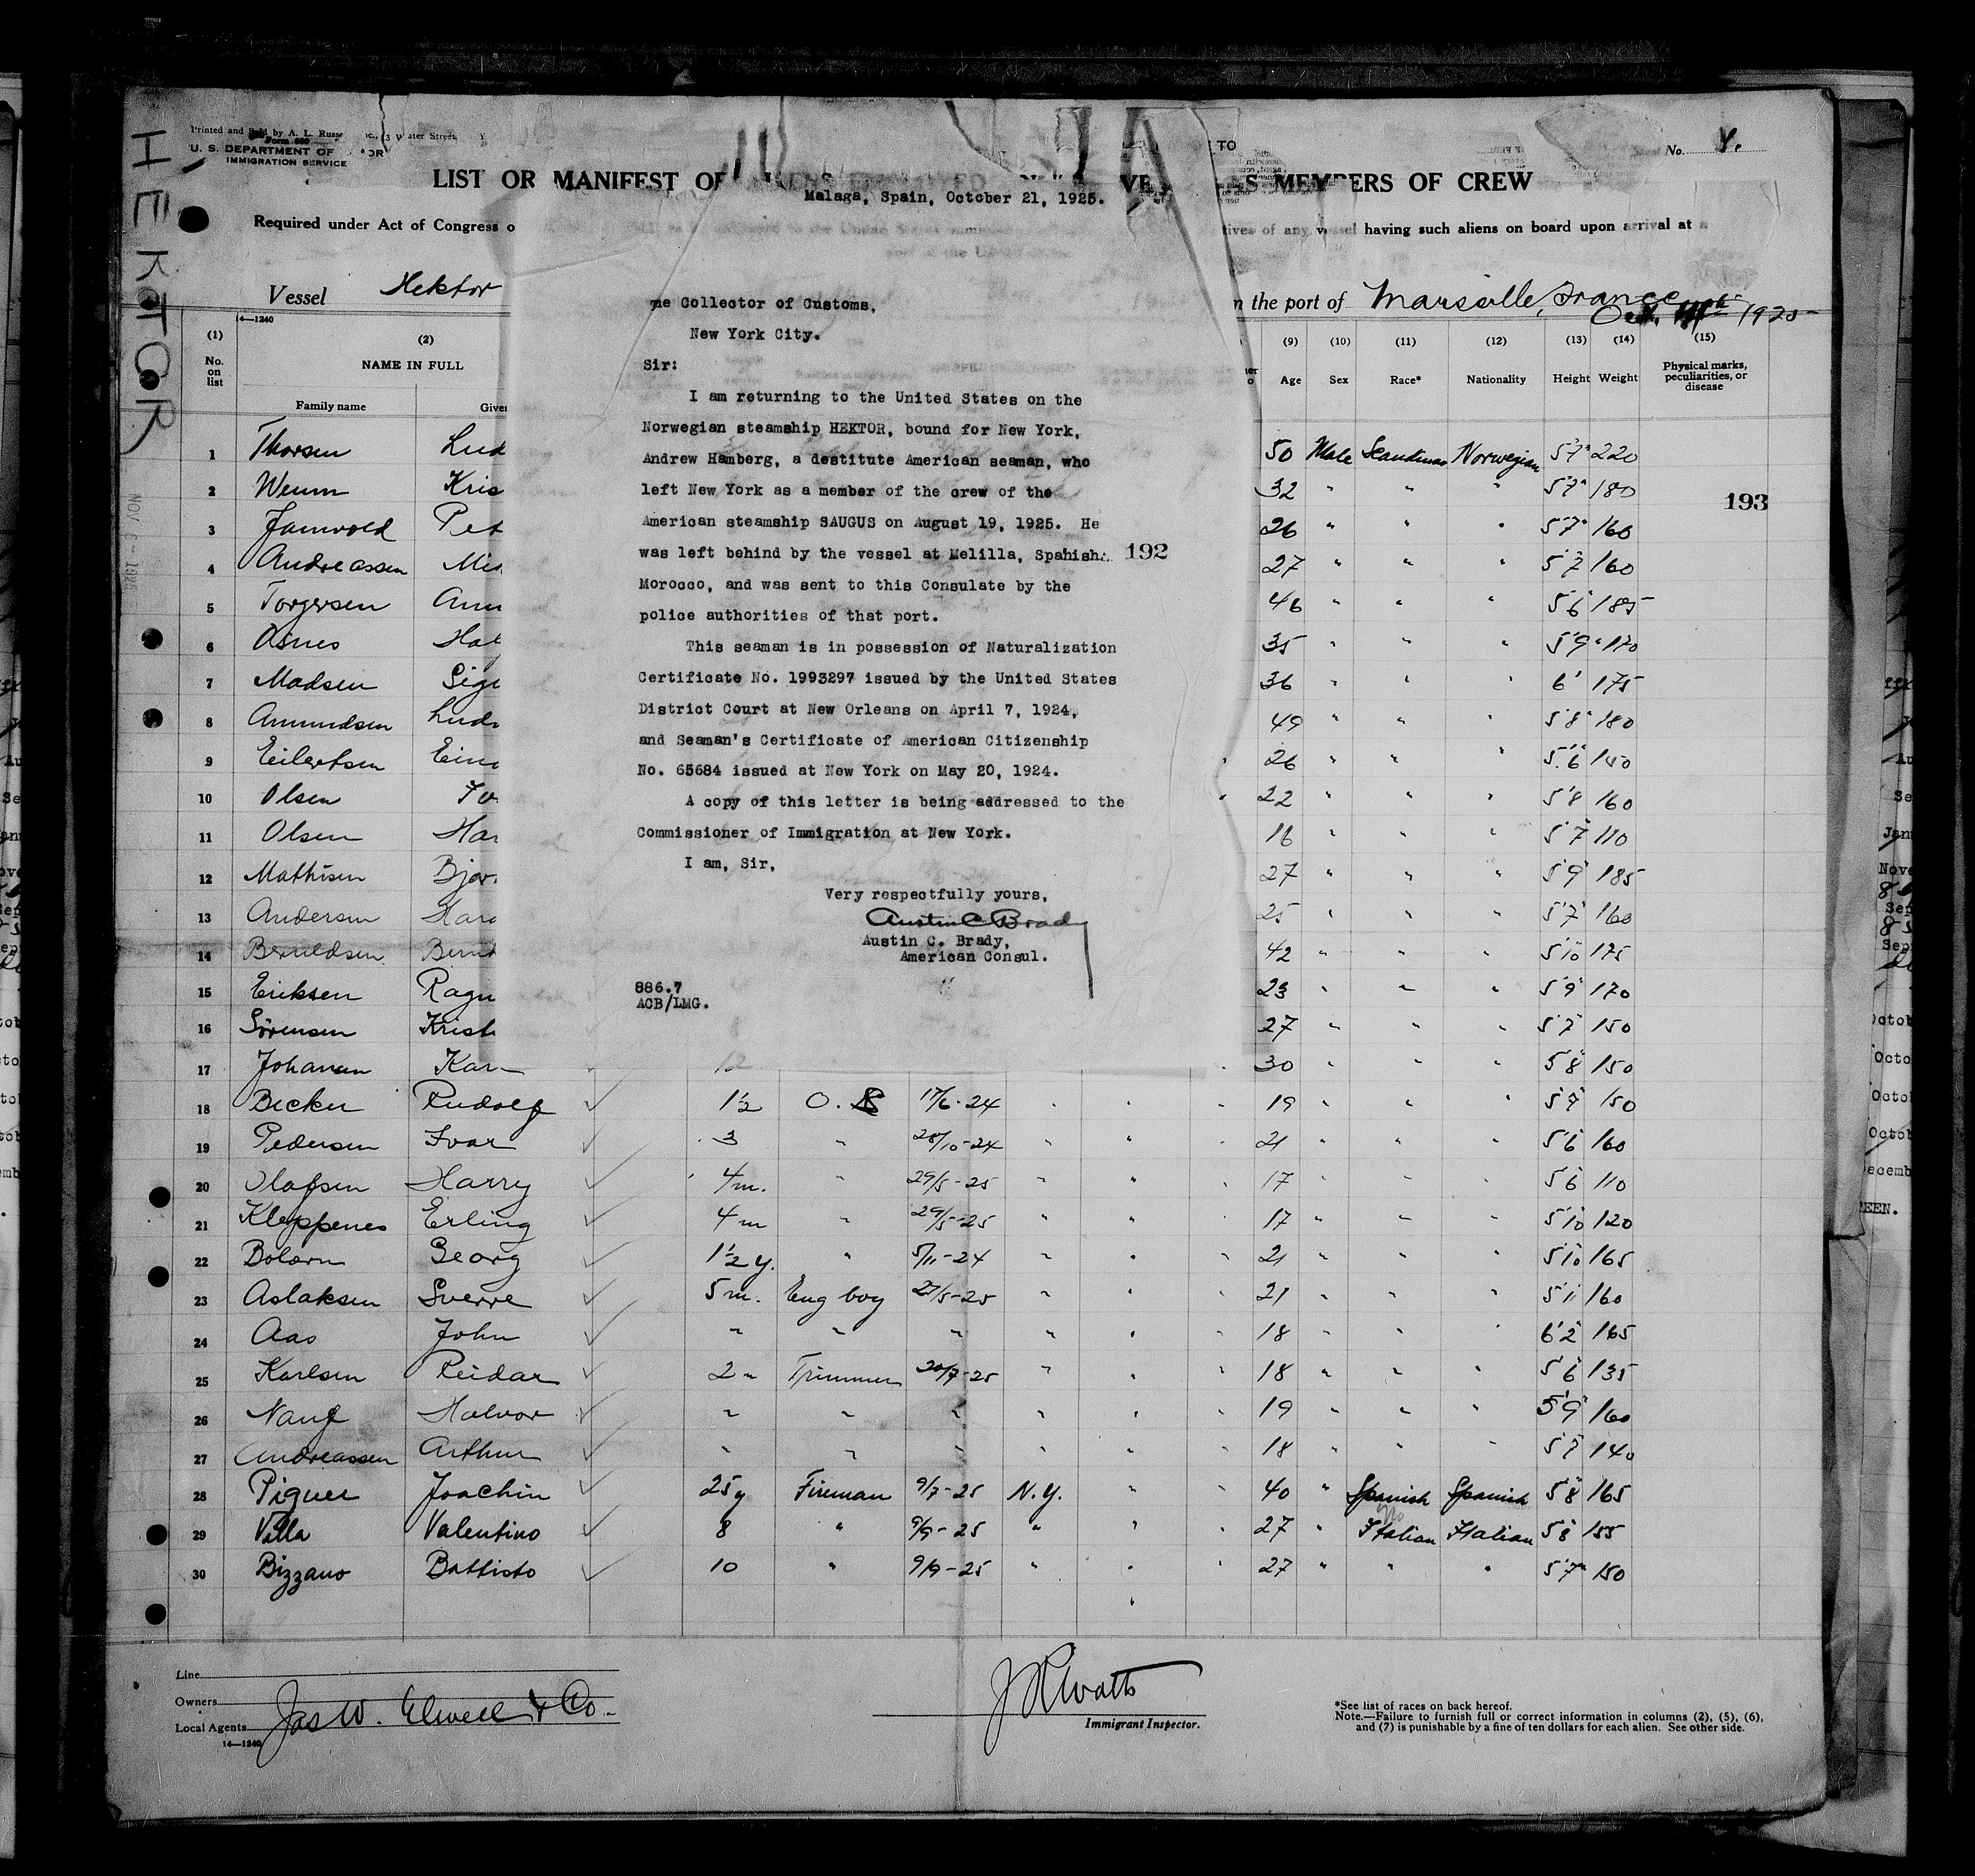 HEKTOR
NOV 6 - 1925
Printed and Sold by A. L. Russ
Water Street
U. S. DEPARTMENT OF
IMMIGRATION SERVICE
TO
No. 4.
LIST OR MANIFEST OF
AS MEMBERS OF CREW
Required under Act of Congress o
tives of any vessel having such aliens on board upon arrival at
Vessel Hektor
the port of Marseille, France
Oct. 1925
14—1240
(1) (2) (9) (10) (11) (12) (13) (14) (15)
No. on list NAME IN FULL Age Sex Race* Nationality Height Weight Physical marks, peculiarities, or disease
Family name Given
Malaga, Spain, October 21, 1925.
Collector of Customs,
New York City.
Sir:
I am returning to the United States on the
Norwegian steamship HEKTOR, bound for New York,
Andrew Hamberg, a destitute American seaman, who
left New York as a member of the crew of the
American steamship SAUGUS on August 19, 1925. He
was left behind by the vessel at Melilla, Spanish
Morocco, and was sent to this Consulate by the
police authorities of that port.
This seaman is in possession of Naturalization
Certificate No. 1993297 issued by the United States
District Court at New Orleans on April 7, 1924,
and Seaman's Certificate of American Citizenship
No. 65684 issued at New York on May 20, 1924.
A copy of this letter is being addressed to the
Commissioner of Immigration at New York.
I am, Sir,
Very respectfully yours,
Austin C Brady
Austin C. Brady,
American Consul.
886.7
ACB/LMG.
192
193
1 Thorsen Lud 50 Male Scandinav Norwegian 5'7" 220
2 Weum Kris 32 " " " 5'7" 180
3 Jamvold Pet 26 " " " 5'7" 160
4 Andreassen 27 " " " 5'7" 160
5 Torgersen 46 " " " 5'6 185
6 Osnes Hal 35 " " " 5'9" 170
7 Madsen Sig 36 " " " 6' 175
8 Amundsen Ludv 49 " " " 5'8" 180
9 Eilertsen Eina 26 " " " 5'6" 150
10 Olsen 22 " " " 5'8 160
11 Olsen Har 16 " " " 5'7" 110
12 Mathisen Bjor 27 " " " 5'9" 185
13 Andersen Hara 25 " " " 5'7" 160
14 Berntldsen Bernt 42 " " " 5'10" 175
15 Eriksen Ragn 23 " " " 5'9" 170
16 Sörensen Krist 27 " " " 5'7" 150
17 Johansen Kar 30 " " " 5'8 150
18 Becker Rudolf 1½ O. S 17/6-24 19 " " " 5'7" 150
19 Pedersen Ivar 3 " 28/10-24 " " " 21 " " " 5'6" 160
20 Olafsen Harry 4 m. " 29/5-25 " " " 17 " " " 5'6 110
21 Kleppenes Erling 4 m " 29/5-25 " " " 17 " " " 5'10" 120
22 Bolærn Georg 1½ y. " 5/11-24 " " " 21 " " " 5'10" 165
23 Aslaksen Sverre 5 m. Eng boy 27/5-25 " " " 21 " " " 5'11" 160
24 Aas John " " " " " " 18 " " " 6'2" 165
25 Karlsen Reidar 2 " Trimmer 20/7-25 " " " 18 " " " 5'6" 135
26 Nang Halvor " " " " " " 19 " " " 5'9" 160
27 Andreassen Arthur " " " " " " 18 " " " 5'7" 140
28 Piquer Joachin 25 y Fireman 9/7-25 N.Y. " " 40 " Spanish Spanish 5'8" 165
29 Villa Valentino 8 " 9/9-25 " " " 27 " Italian Italian 5'8" 155
30 Bizzano Battisto 10 " 9/9-25 " " " 27 " " " 5'7" 150
Line
Owners
Local Agents Jas W. Elwell & Co.
14—1240
J R Watts
Immigrant Inspector.
*See list of races on back hereof.
Note.—Failure to furnish full or correct information in columns (2), (5), (6),
and (7) is punishable by a fine of ten dollars for each alien. See other side.